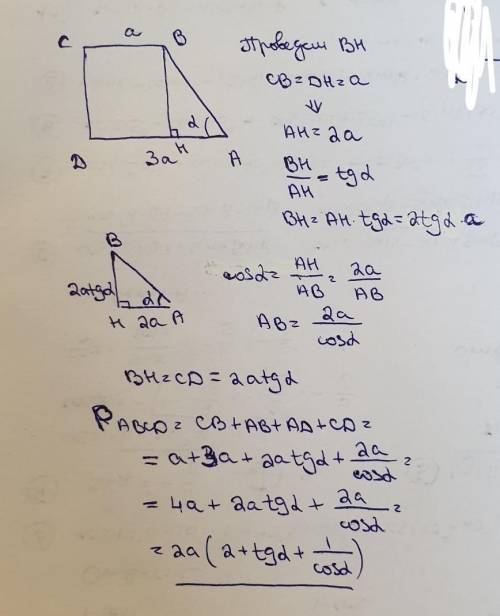 C a B
D 3a H α A
Проведем BH
CB = DH = a
⇓
AH = 2a
BH/AH = tgα
BH = AH · tgα = 2tgα · a
B
2atgα α
H 2a A
cosα = AH/AB = 2a/AB
AB = 2a/cosα
BH = CD = 2atgα
P ABCD = CB + AB + AD + CD =
= a + 3a + 2atgα + 2a/cosα =
= 4a + 2atgα + 2a/cosα =
= 2a(2 + tgα + 1/cosα)